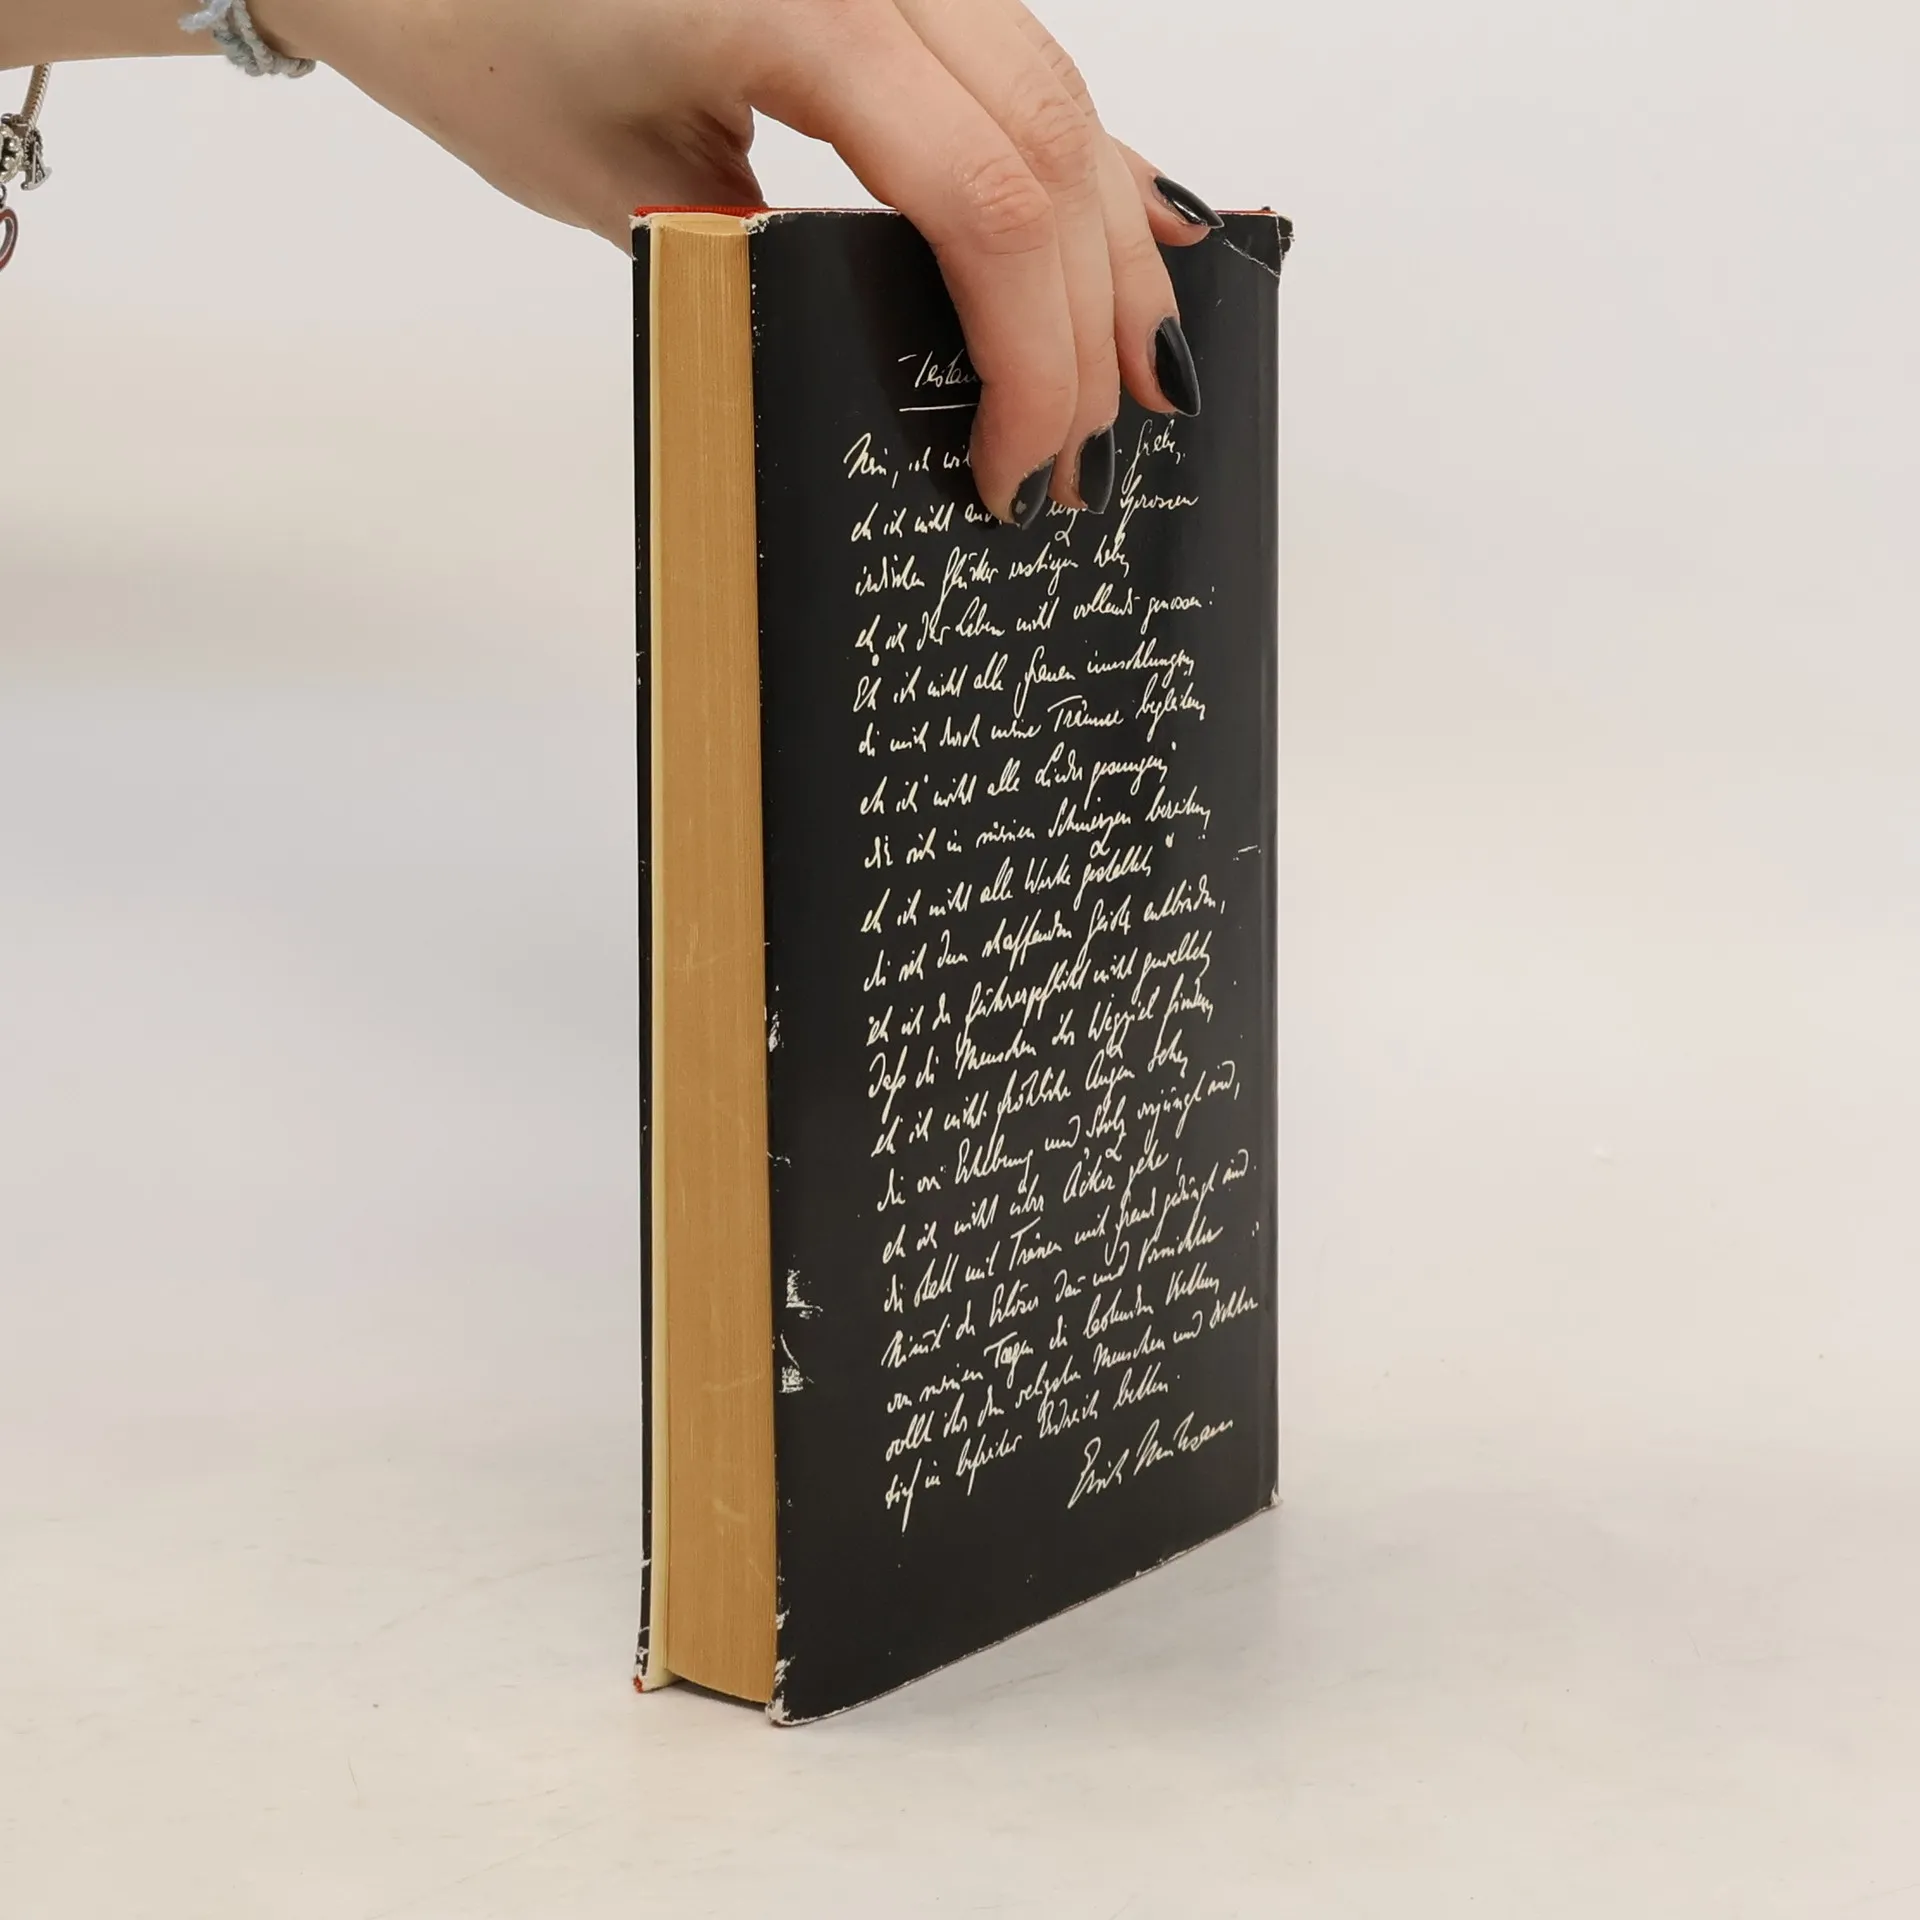 Testam
Nein, ich wil Grabe,
eh ich nicht auch letzte Sprossen
irdischen Glückes erstiegen habe,
eh ich das Leben nicht vollends genossen:
Eh ich nicht alle Frauen umschlungen,
die mich durch meine Träume begleiten,
eh ich nicht alle Lieder gesungen,
die sich in meinen Schmerzen bereiten,
eh ich nicht alle Werke gestaltet,
die sich dem schaffenden Geiste entbinden,
eh ich der Führerpflicht nicht gewaltet,
daß die Menschen ihr Wegziel finden,
eh ich nicht fröhliche Augen sehe,
die von Erhebung und Stolz verjüngt sind,
eh ich nicht über Äcker gehe,
die statt mit Tränen mit Freud gedüngt sind.
Nimmt der Erlöser dann und Vernichter
von meinen Tagen die lastenden Ketten,
sollt ihr den seligsten Menschen und Dichter
tief in befreiter Erdreich betten.
Erich Mühsam